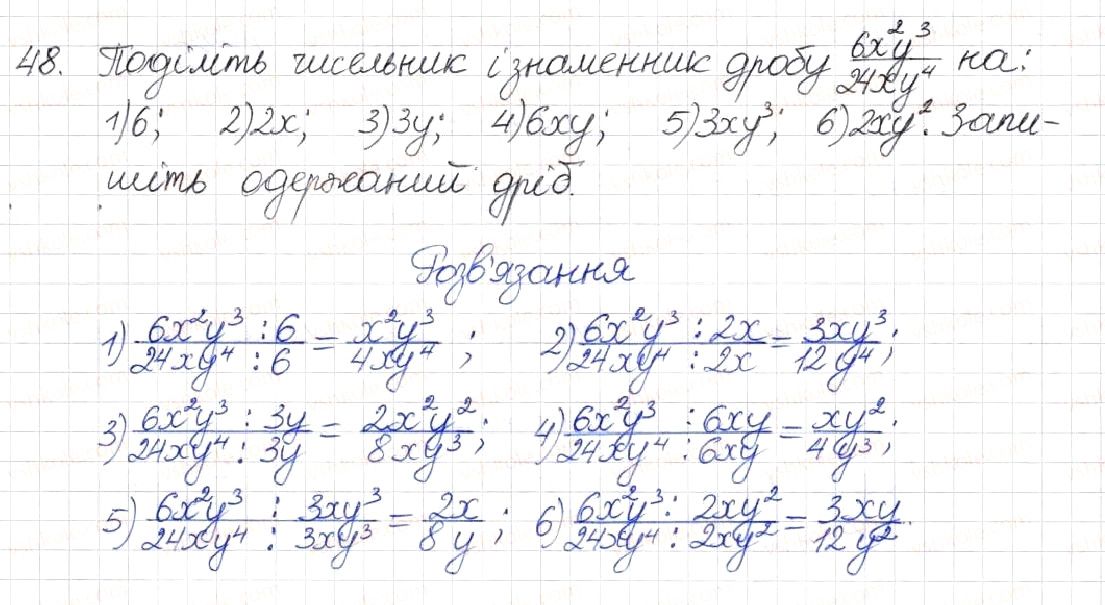 48. Поділіть чисельник і знаменник дробу 6x²y³/24xy⁴ на:
1) 6; 2) 2x; 3) 3y; 4) 6xy; 5) 3xy³; 6) 2xy². Запи-
шіть одержаний дріб.
Розв'язання
1) 6x²y³ : 6 / 24xy⁴ : 6 = x²y³ / 4xy⁴ ; 2) 6x²y³ : 2x / 24xy⁴ : 2x = 3xy³ / 12y⁴ ;
3) 6x²y³ : 3y / 24xy⁴ : 3y = 2x²y² / 8xy³ ; 4) 6x²y³ : 6xy / 24xy⁴ : 6xy = xy² / 4y³ ;
5) 6x²y³ : 3xy³ / 24xy⁴ : 3xy³ = 2x / 8y ; 6) 6x²y³ : 2xy² / 24xy⁴ : 2xy² = 3xy / 12y² .